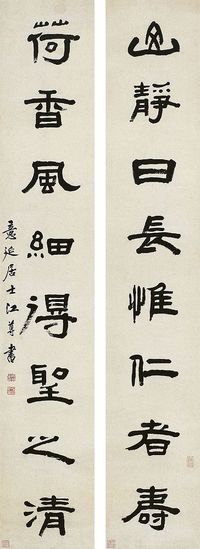 山靜日長惟仁者壽
荷香風細得聖之清
意延居士江尊書